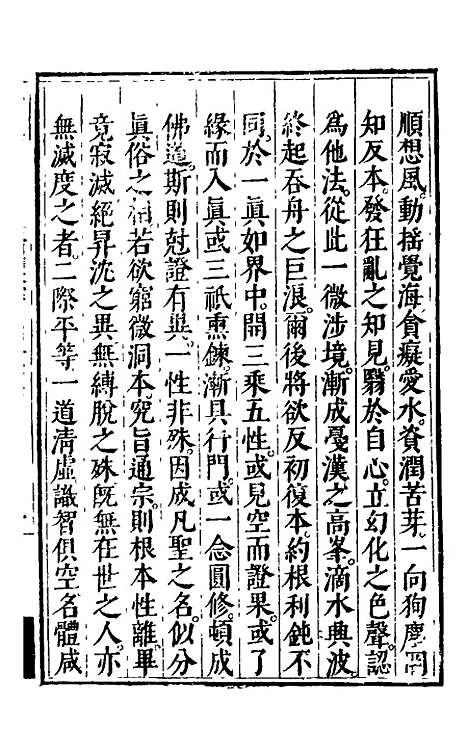 順想風。動搖覺海。貪癡愛水。資潤苦芽。一向狥塵。罔
知反本。發狂亂之知見。翳於自心。立幻化之色聲。認
爲他法。從此一微涉境。漸成戞漢之高峯。滴水興波。
終起吞舟之巨浪。爾後將欲反初復本。約根利鈍不
同。於一眞如界中。開三乘五性。或見空而證果。或了
緣而入眞。或三祇熏鍊。漸具行門。或一念圓修。頓成
佛道。斯則尅證有異。一性非殊。因成凡聖之名。似分
眞俗之相。若欲窮微洞本。究旨通宗。則根本性離。畢
竟寂滅。絕昇沈之異。無縛脫之殊。旣無在世之人。亦
無滅度之者。二際平等。一道清虛。識智俱空。名體咸